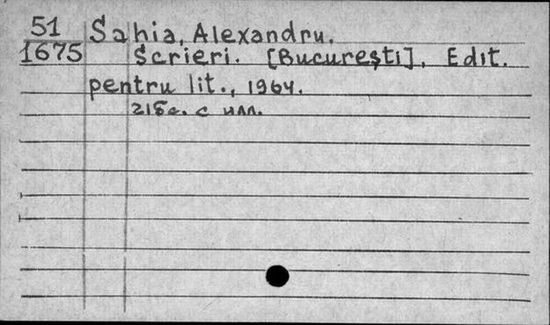 51 Sahia, Alexandru.
1675 Scrieri. [Bucureşti], Edit.
pentru lit., 1964.
215 с. с илл.